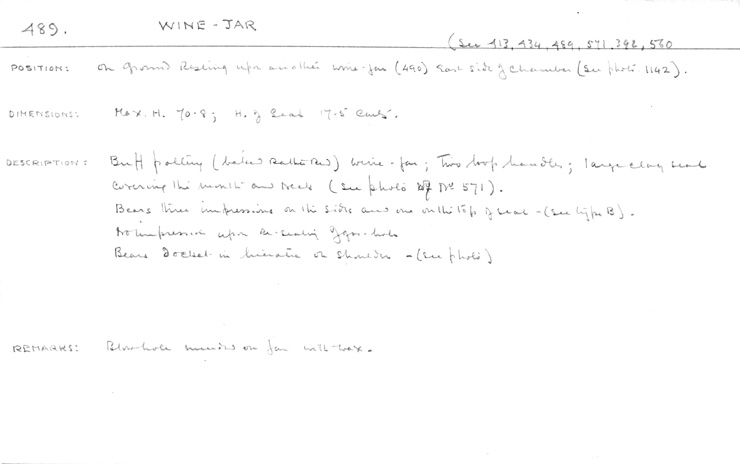 489.
WINE-JAR
(See 413, 434, 489, 571, 392, 560
POSITION: On Ground Resting upon another wine-jar (490) East side of Chamber (See photo 1142).
DIMENSIONS: Max. H. 70.8; H. of Seal 17.5 Cents.
DESCRIPTION: Buff pottery (baked rather Red) wine-jar; Two loop handles; large clay seal
covering the mouth and neck (see photo of No 571).
Bears three impressions on the sides and one on the top of seal - (see type B).
No impression upon re-sealing of gas-hole
Bears Docket in hieratic on shoulder - (see photo)
REMARKS: Blow-hole mended on jar with wax.